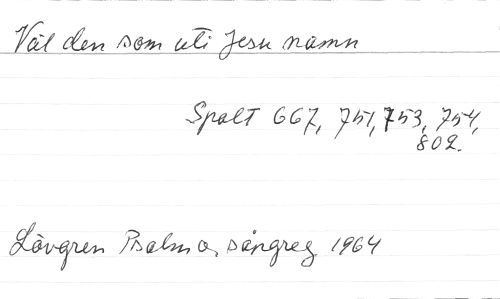 Väl den som uti Jesu namn
Spalt 667, 751, 753, 754,
802.
Lövgren Psalm o. sångreg 1964